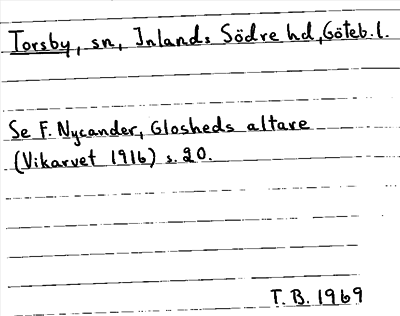 Torsby, sn, Inlands Södre hd, Göteb. l.
Se F. Nycander, Glosheds altare
(Vikarvet 1916) s. 20.
T. B. 1969